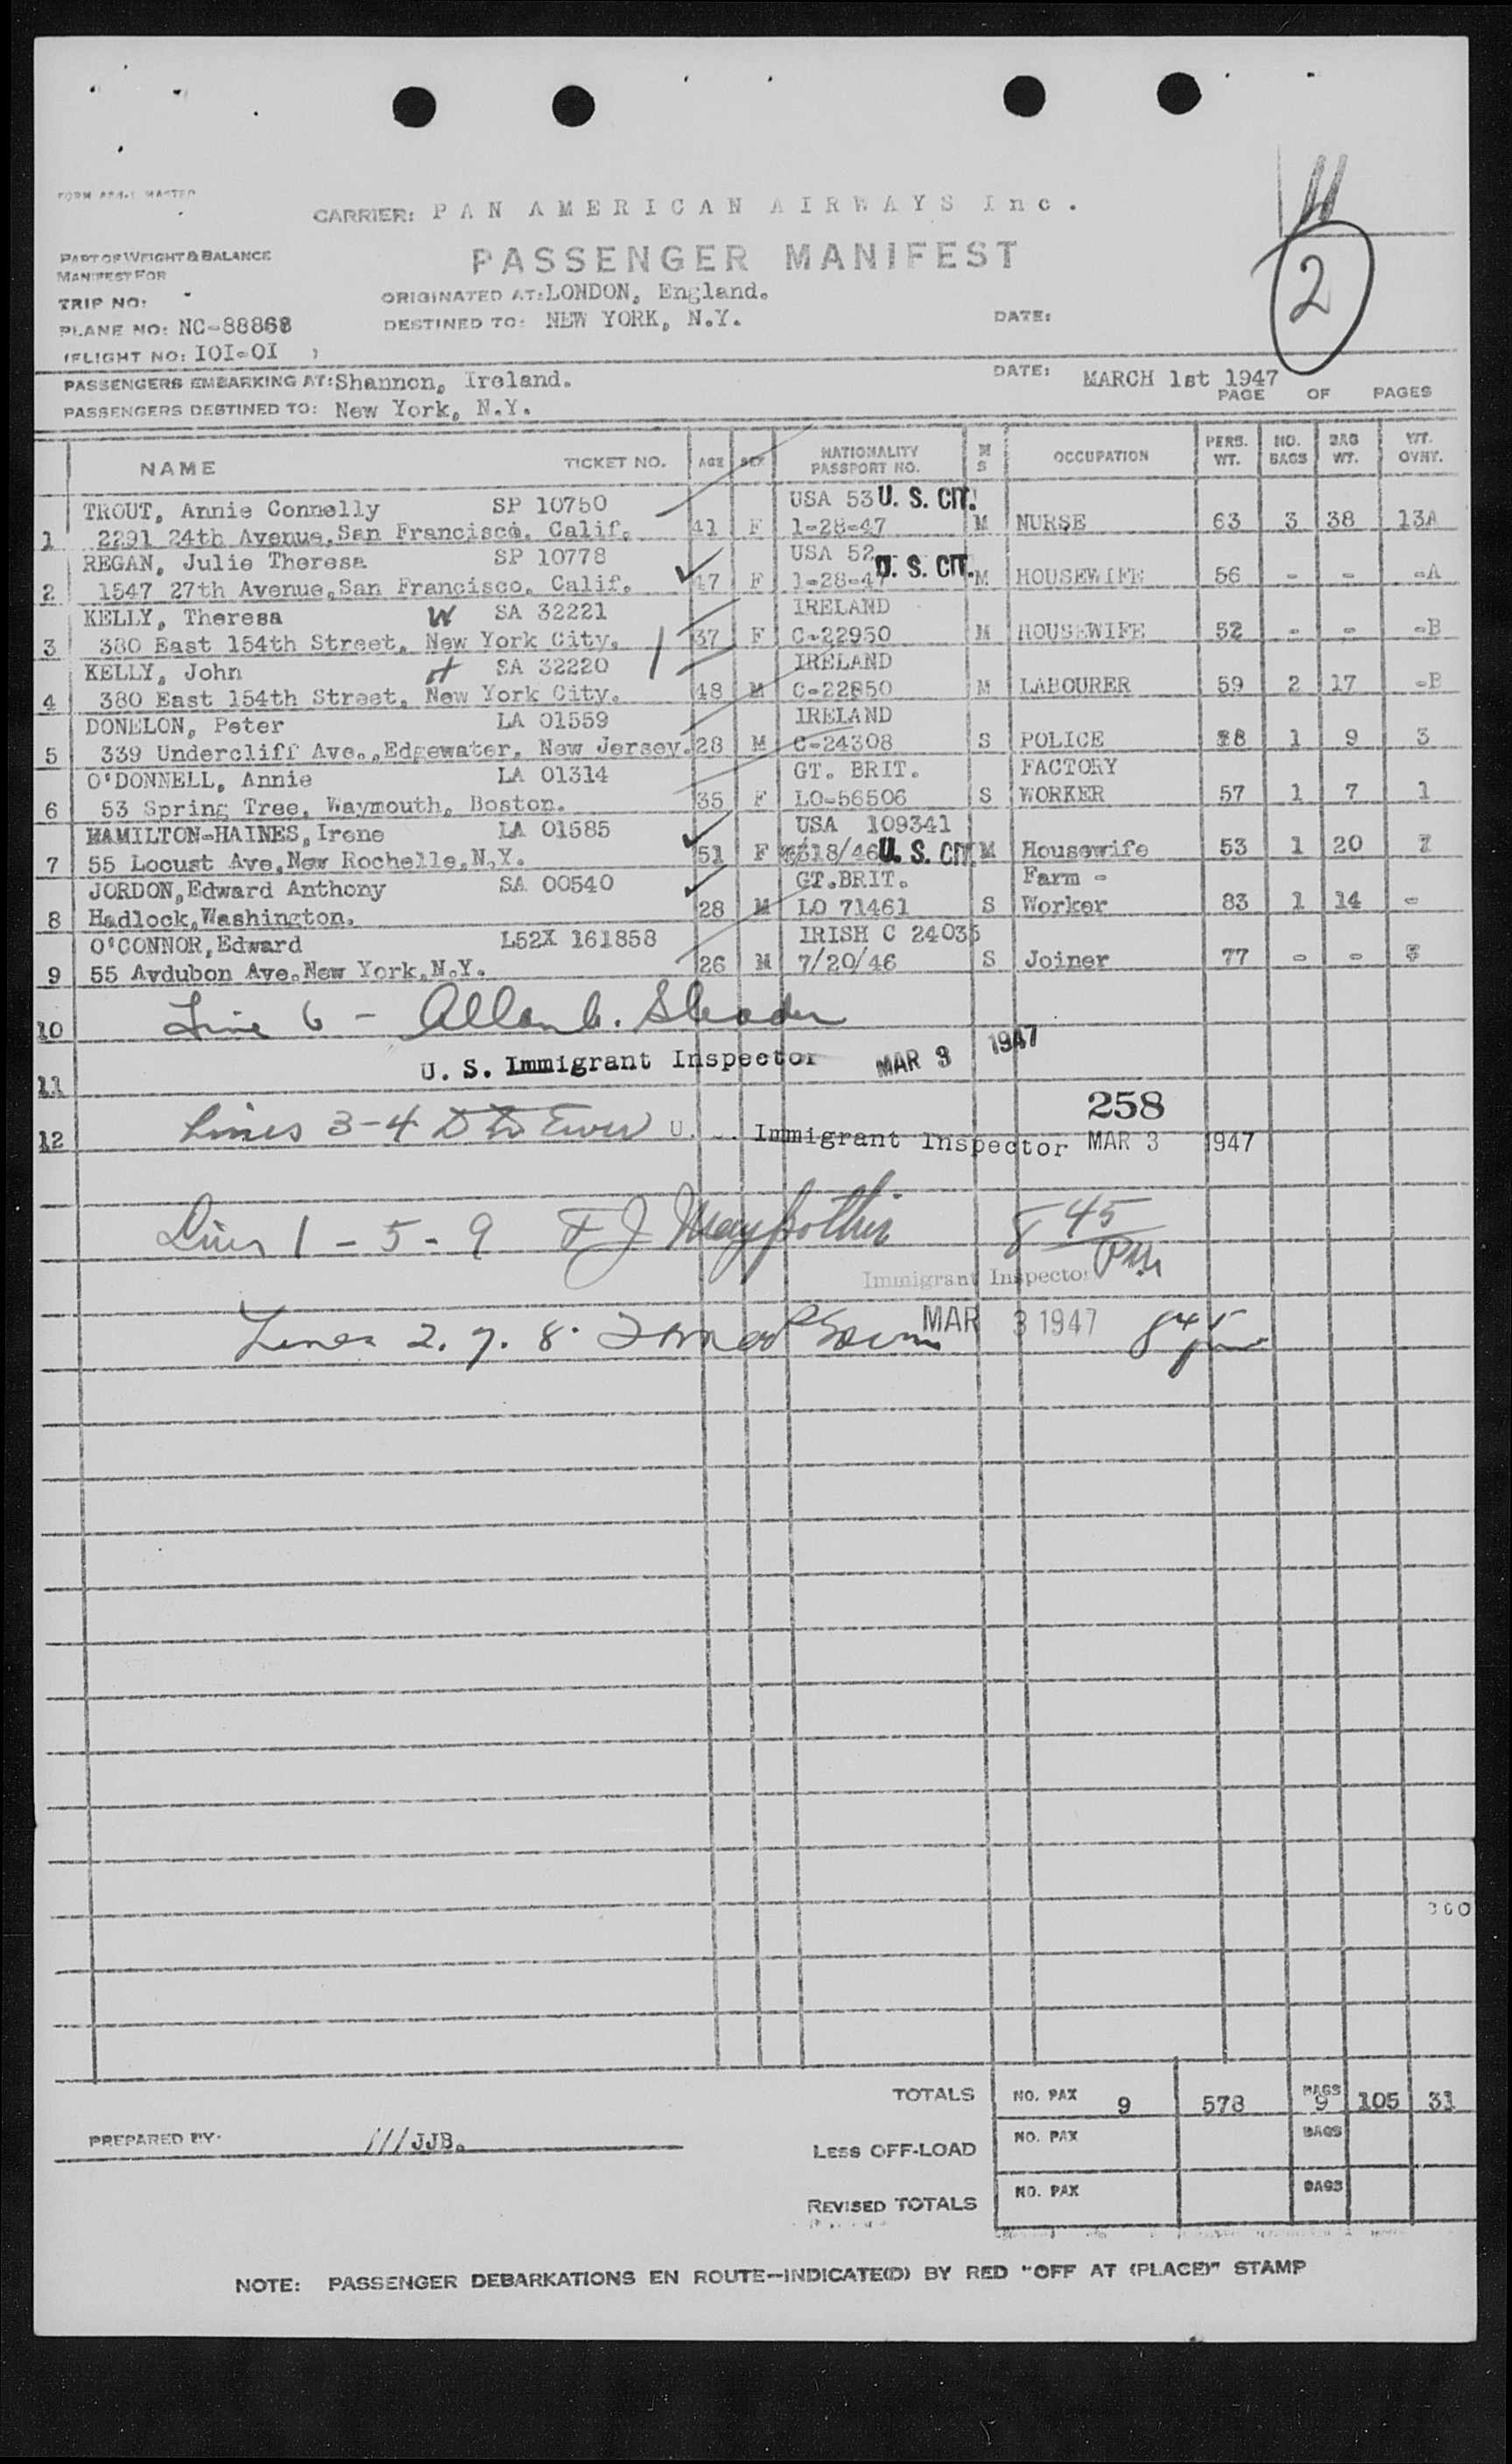 CARRIER: PAN AMERICAN AIRWAYS Inc.
11
PASSENGER MANIFEST
2
PART OF WEIGHT & BALANCE
MANIFEST FOR
TRIP NO:
ORIGINATED AT: LONDON, England.
PLANE NO: NC-88868
DESTINED TO: NEW YORK, N.Y.
DATE:
(FLIGHT NO: IOI-OI )
PASSENGERS EMBARKING AT: Shannon, Ireland.
DATE: MARCH 1st 1947
PASSENGERS DESTINED TO: New York, N.Y.
PAGE OF PAGES
NAME TICKET NO. AGE SEX NATIONALITY PASSPORT NO. M S OCCUPATION PERS. WT. NO. BAGS BAG WT. WT. OVRT.
TROUT, Annie Connelly SP 10750 USA 53 U. S. CIT.
1 2291 24th Avenue, San Francisco, Calif. 41 F 1-28-47 M NURSE 63 3 38 13A
REGAN, Julie Theresa SP 10778 USA 52 U. S. CIT.
2 1547 27th Avenue, San Francisco, Calif. 47 F 1-28-47 M HOUSEWIFE 56 - - -A
KELLY, Theresa W SA 32221 IRELAND
3 380 East 154th Street, New York City. 37 F C-22950 M HOUSEWIFE 52 - - -B
KELLY, John H SA 32220 IRELAND
4 380 East 154th Street, New York City. 48 M C-22850 M LABOURER 59 2 17 -B
DONELON, Peter LA 01559 IRELAND
5 339 Undercliff Ave., Edgewater, New Jersey. 28 M C-24308 S POLICE 78 1 9 3
O'DONNELL, Annie LA 01314 GT. BRIT. FACTORY
6 53 Spring Tree, Waymouth, Boston. 35 F LO-56506 S WORKER 57 1 7 1
HAMILTON-HAINES, Irene LA 01585 USA 109341
7 55 Locust Ave, New Rochelle, N.Y. 51 F 18/46 U. S. CIT. M Housewife 53 1 20 7
JORDON, Edward Anthony SA 00540 GT.BRIT. Farm -
8 Hadlock, Washington. 28 M LO 71461 S Worker 83 1 14 -
O'CONNOR, Edward L52X 161858 IRISH C 24035
9 55 Avdubon Ave, New York, N.Y. 26 M 7/20/46 S Joiner 77 - -
10 Line 6 -
11 U. S. Immigrant Inspector MAR 3 1947
258
12 Lines 3-4 U. S. Immigrant Inspector MAR 3 1947
Lines 1 - 5 - 9 8 45 PM
Immigrant Inspector
Lines 2. 7. 8. MAR 3 1947 8 45 pm
TOTALS NO. PAX 9 578 BAGS 9 105 31
PREPARED BY. ///JJB.
LESS OFF-LOAD NO. PAX BAGS
REVISED TOTALS NO. PAX BAGS
NOTE: PASSENGER DEBARKATIONS EN ROUTE—INDICATE(D) BY RED "OFF AT (PLACE)" STAMP